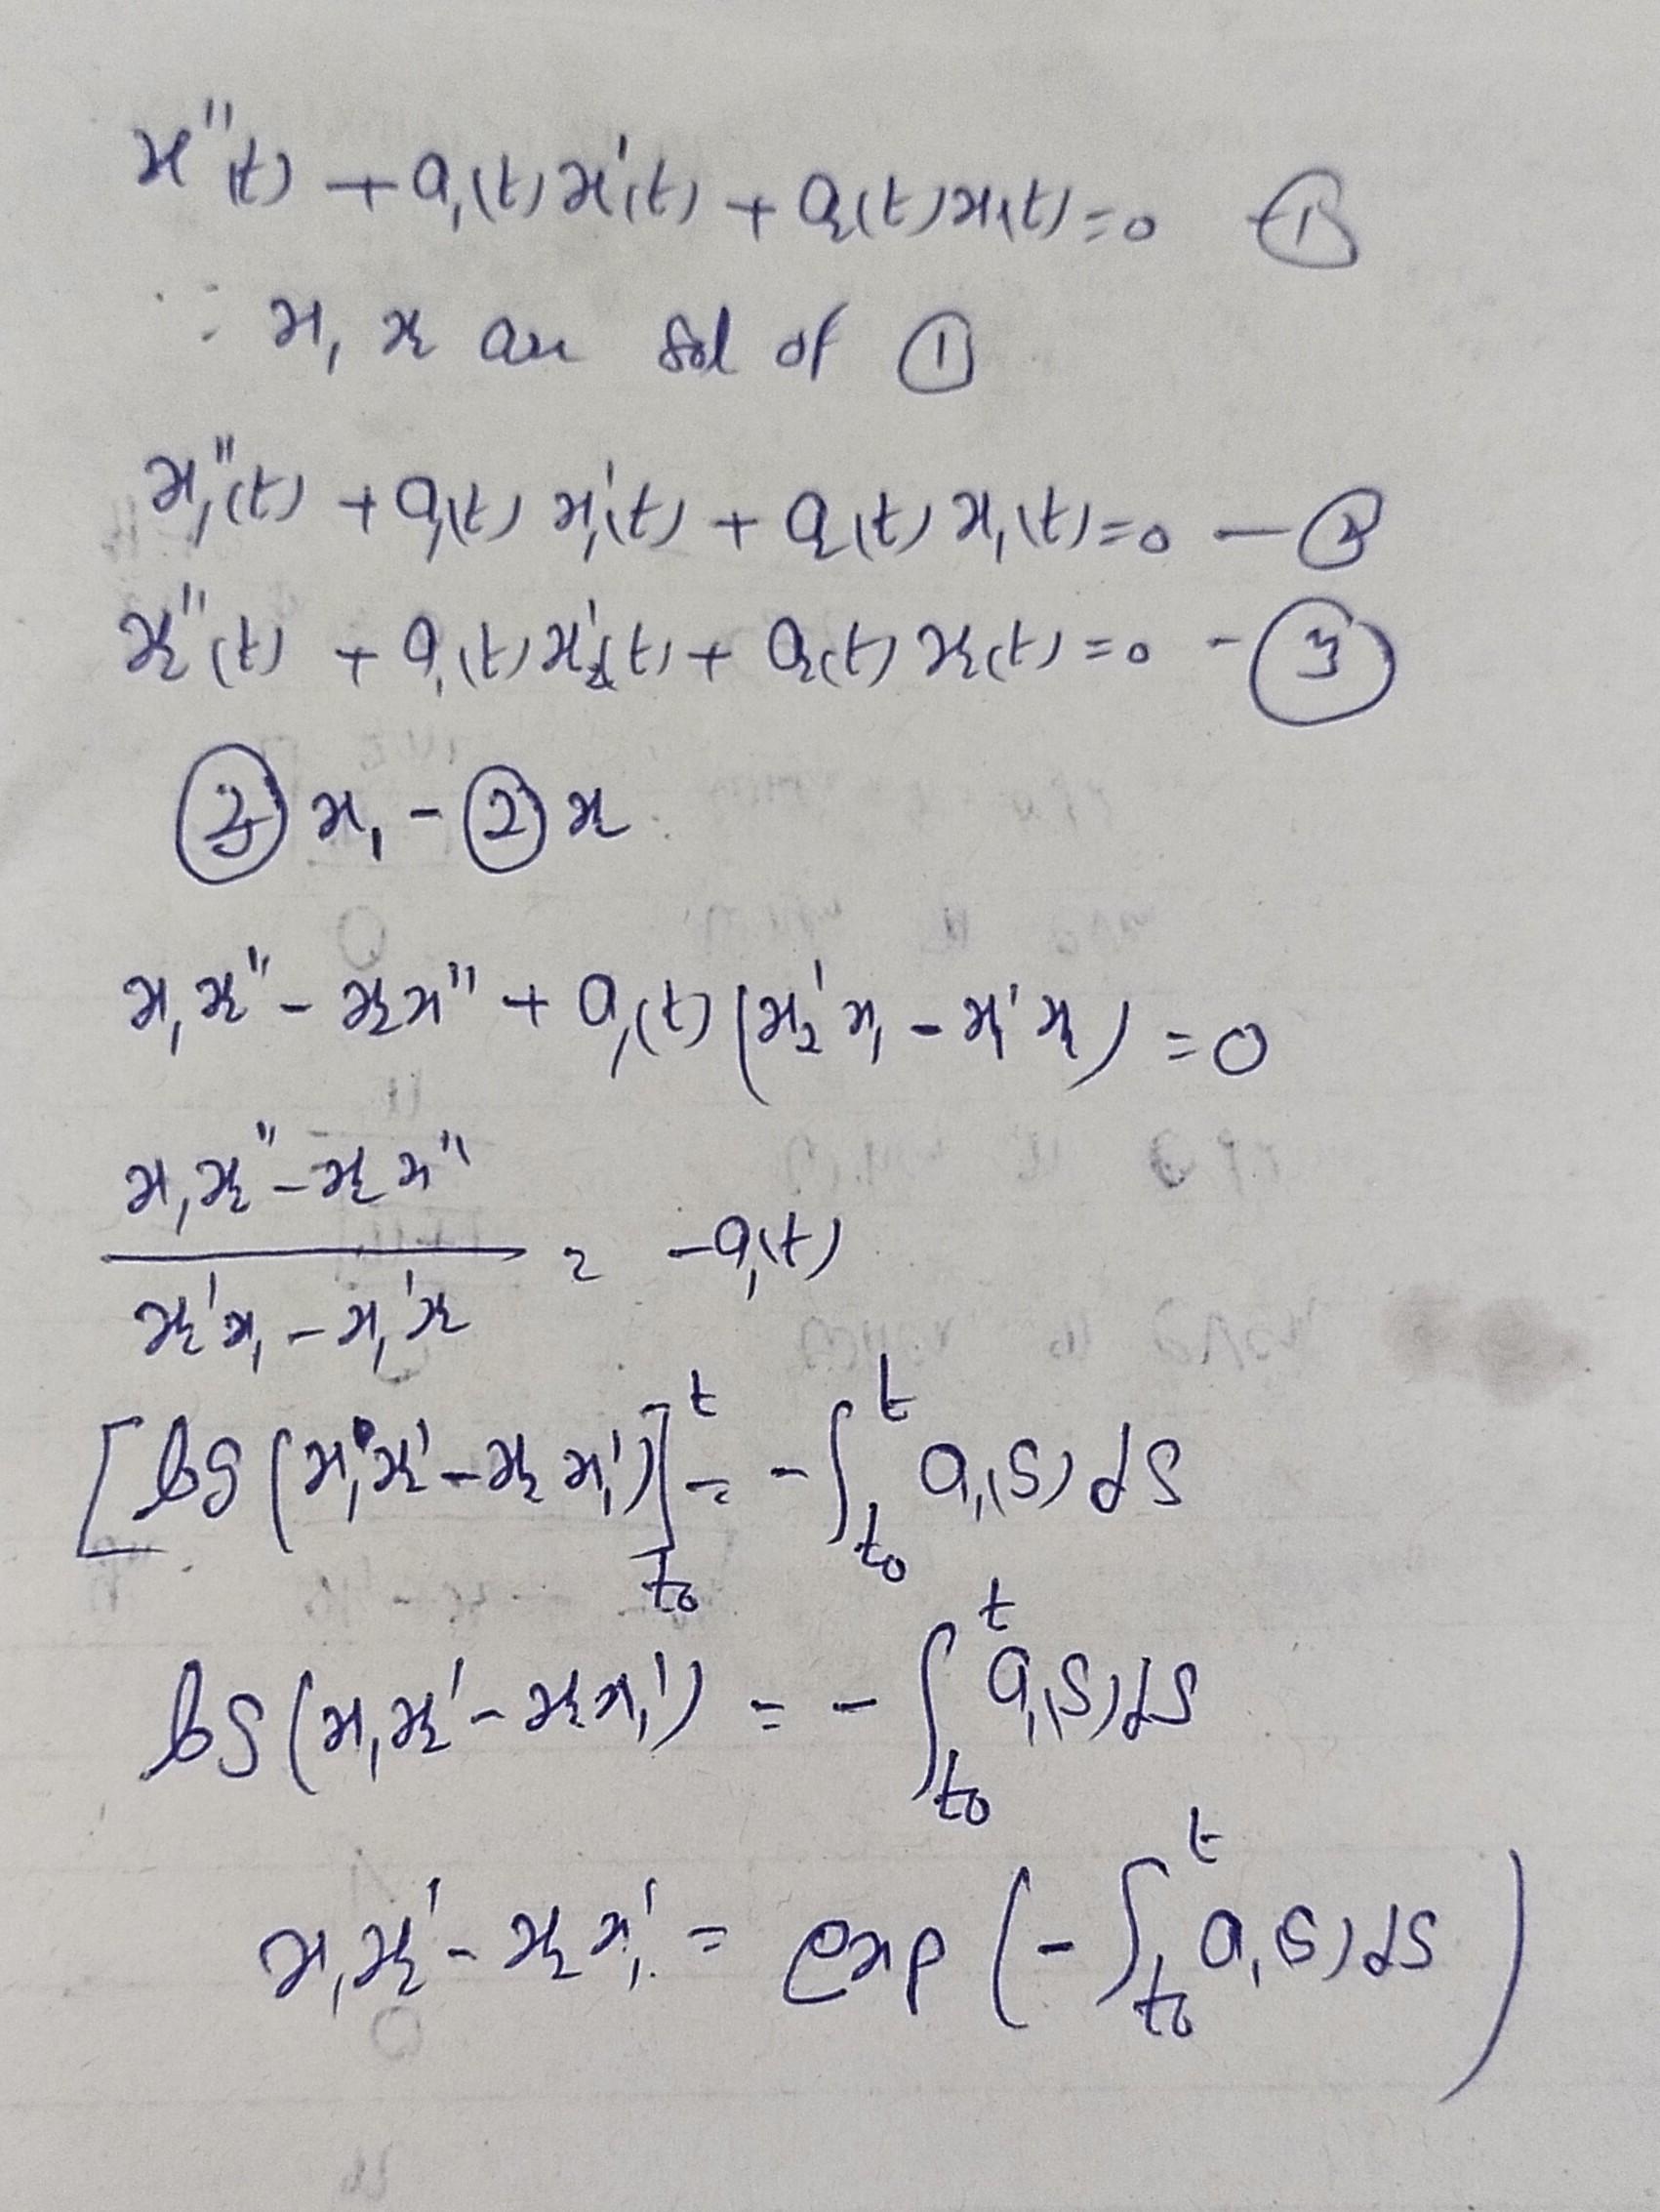 x''(t) + a₁(t) x'(t) + a₂(t) x(t) = 0 ①
∵ x₁ x₂ are sol of ①
x₁''(t) + a₁(t) x₁'(t) + a₂(t) x₁(t) = 0 — ②
x₂''(t) + a₁(t) x₂'(t) + a₂(t) x₂(t) = 0 - ③
③ x₁ - ② x₂
x₁ x₂'' - x₂ x'' + a₁(t) (x₂' x₁ - x₁' x₂) = 0
x₁ x₂'' - x₂ x''
x₂' x₁ - x₁' x₂ = -a₁(t)
[log (x₁ x₂' - x₂ x₁')]_{t₀}^{t} = -∫_{t₀}^{t} a₁(s) ds
log (x₁ x₂' - x₂ x₁') = -∫_{t₀}^{t} a₁(s) ds
x₁ x₂' - x₂ x₁' = exp (-∫_{t₀}^{t} a₁(s) ds)